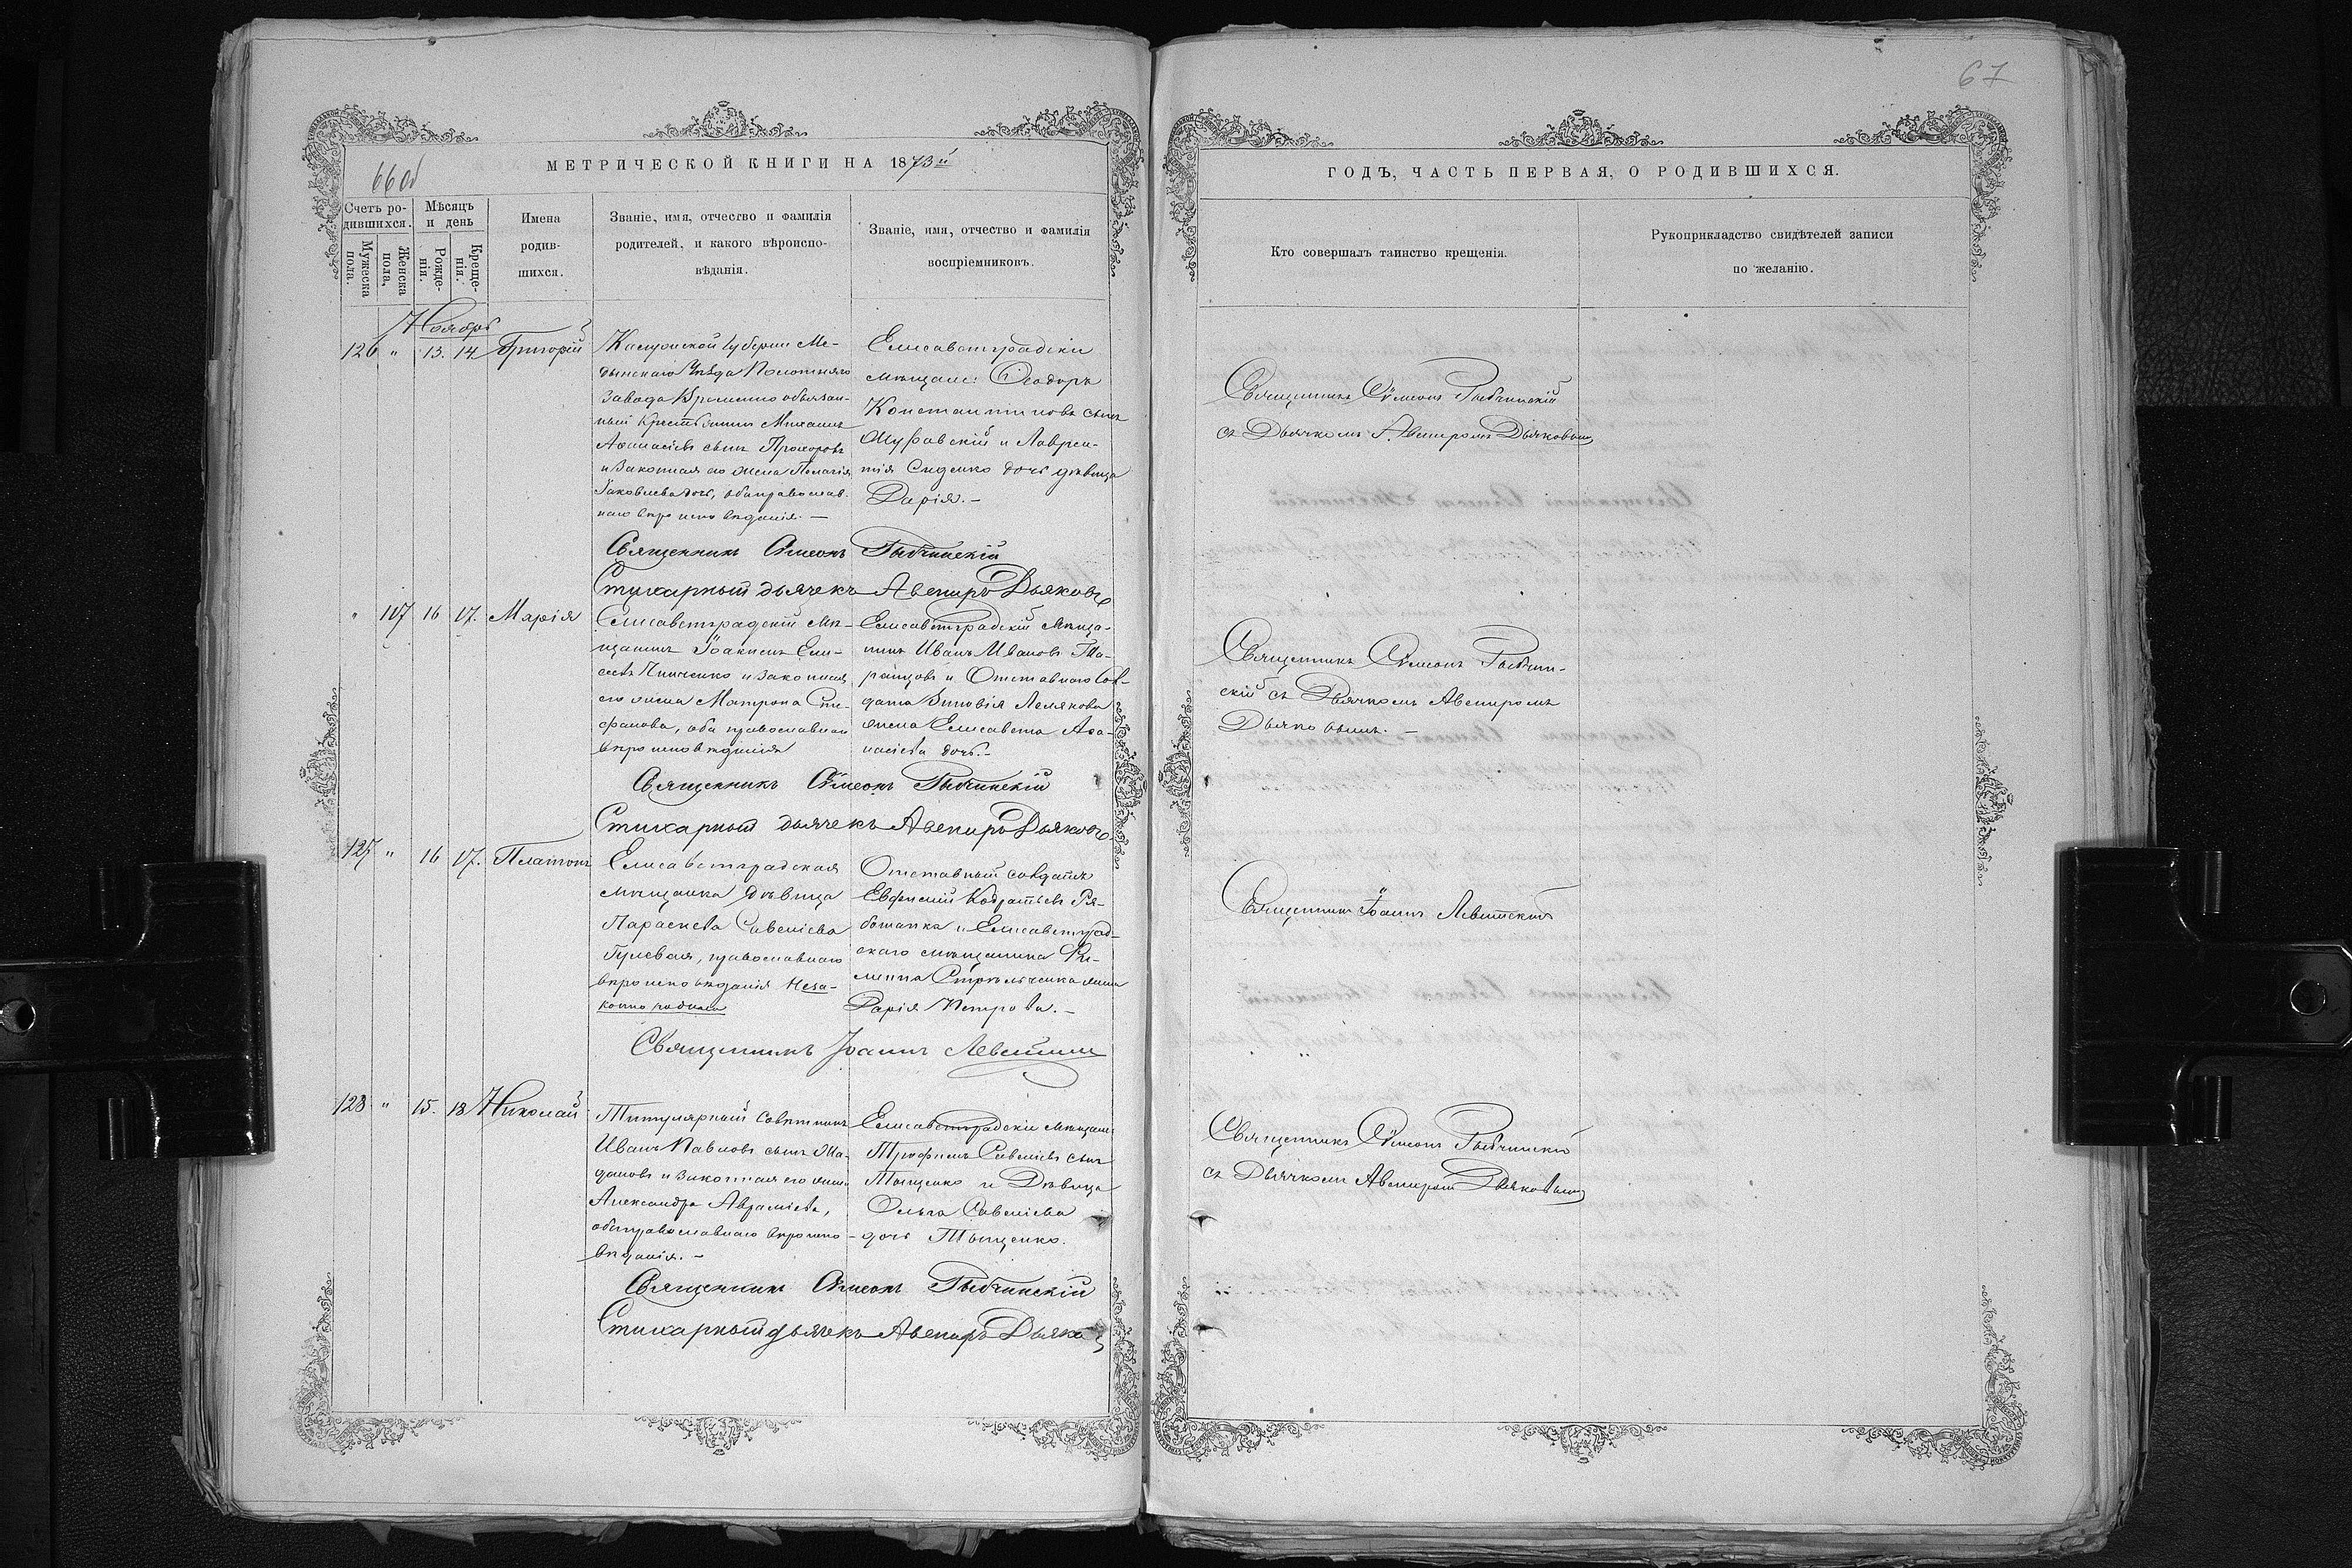 67
МЕТРИЧЕСКОЙ КНИГИ НА 1873й
66 об
Счетъ ро-
дившихся.
Мужеска
пола.
Женска
пола,
Мѣсяцъ
и день
Рожде-
нія.
Креще-
нія.
Имена
родив-
шихся.
Званіе, имя, отчество и фамилія
родителей, и какого вѣроиспо-
вѣданія.
Званіе, имя, отчество и фамилія
воспріемниковъ.
Ноябрь
126 " 13. 14 Григорій
Калужской Губерніи Ме-
дынскаго Уѣзда Полотняго
Завода Временно обязан-
ный Крестьянинъ Михаилъ
Аѳанасіевъ сынъ Прохоровъ
и Законная его жена Пелагія
Іаковлева дочь, оба православ-
наго вѣроисповѣданія. —
Елисаветградскіе
мѣщане: Ѳеодоръ
Константиновъ сынъ
и Лаврен-
тія Сиденко дочь дѣвица
Дарія. —
Священникъ Сѵмеонъ Рыбчинскій
Стихарный дьячекъ Авениръ Дьяковъ
" 107 16 17. Марія
Елисаветградскій Мѣ-
щанинъ Іоакимъ Ели-
сеевъ Пинченко и Законная
его жена Матрона Сте-
фанова, оба православнаго
вѣроисповѣданія
Елисаветградскій Мѣща-
нинъ Иванъ Ивановъ Та-
ранцовъ и Отставнаго Сол-
дата Зиновія Лелякова
жена Елисавета Аѳа-
насіева дочь. —
Священникъ Сѵмеонъ Рыбчинскій
Стихарный дьячекъ Авениръ Дьяковъ
127 " 16 17. Платонъ
Елисаветградская
мѣщанка дѣвица
Параскева Савеліева
Гулевая, православнаго
вѣроисповѣданія Неза-
конно
Отставный солдатъ
Евфимій Кодратьевъ Ря-
и Елисаветград-
скаго мѣщанина Кли-
мента жена
Дарія Петрова. —
Священникъ Іоаннъ Левитскій
128 " 15. 18 Николай
Титулярный Совѣтникъ
Иванъ Павловъ сынъ Ма-
дановъ и Законная его жена
Александра Аврамiева,
оба православнаго вѣроиспо-
вѣданія. —
Елисаветградскіе мѣщане
Трофимъ Савеліевъ сынъ
Тыщенко и Дѣвица
Ольга Савеліева
дочь Тыщенко.
Священникъ Сѵмеонъ Рыбчинскій
Стихарный дьячекъ Авениръ Дьяковъ
ГОДЪ, ЧАСТЬ ПЕРВАЯ, О РОДИВШИХСЯ.
Кто совершалъ таинство крещенія.
Рукоприкладство свидѣтелей записи
по желанію.
Священникъ Сѵмеонъ Рыбчинскій
съ Дьячкомъ Авениромъ Дьяковымъ
Священникъ Сѵмеонъ Рыбчин-
скій съ Дьячкомъ Авениромъ
Дьяковымъ. —
Священникъ Іоаннъ Левитскій
Священникъ Сѵмеонъ Рыбчинскій
съ Дьячкомъ Авениромъ Дьяковымъ